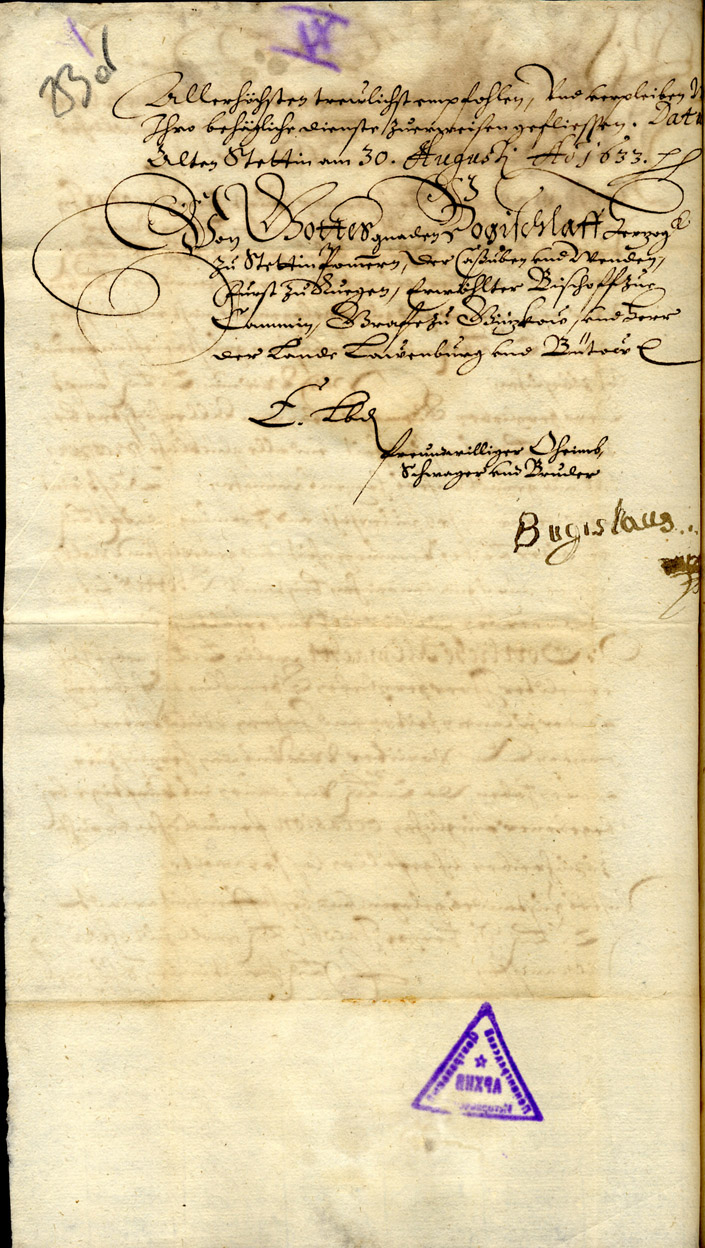 Allerhöchsten treülichst empfohlen, Vnd verpleiben
Ihro behägliche dienste zuerweisen gefliessen. Dat
Alten Stettin am 30. Augusti Ao 1633.
Von Gottes gnaden Bogischlaff Herzog
zu Stettin Pomern, der Caßuben vnd Wenden,
Furst zu Ruegen, Erwöhlter Bischoff zue
Cammin, Graffe zu Guzkow, vnd Herr
der Lande Lawenburg vnd Bütow
E. Lbd
freundwilliger Oheimb,
Schwager vnd Bruder
Bugislaus
АРХИВ